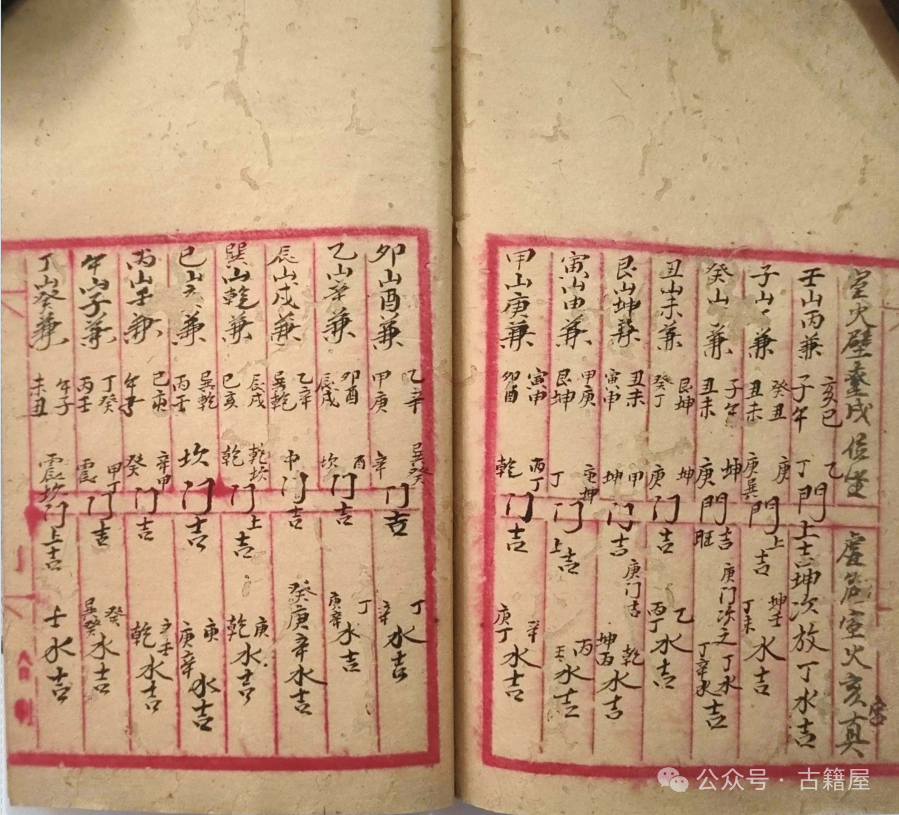 室火壁 戌 室火亥真
壬山丙兼 亥巳 子午 乙丁門上吉坤次放丁水吉
子山丶兼 癸丁 丑未 庚 庚巽門上吉 坤壬 丁未水吉
癸山兼 子午 丑未 坤庚門吉旺 庚门次之丁水 丁辛水吉
丑山未兼 艮坤 癸丁 坤庚门吉 乙丙丁水吉
艮山坤兼 丑未 寅申 甲坤门吉 庚门吉 乾坤丙水吉
寅山申兼 甲庚 艮坤 庚坤丁门上吉 丙壬水吉
甲山庚兼 寅申 卯酉 丙丁乾门吉 辛庚丁水吉
卯山酉兼 乙辛 甲庚 巽癸辛门吉 丁辛水吉
乙山辛兼 卯酉 辰戌 酉坎门吉 丁庚辛水吉
辰山戌兼 乙辛 巽乾 门吉 癸庚辛水吉
巽山乾兼 辰戌 巳亥 乾坎乾门上吉 庚乾水吉
巳山亥兼 巽乾 丙壬 坎门吉 庚庚辛水吉
丙山壬兼 巳亥 午子 辛甲癸门吉 乾水吉
午山子兼 丁癸 丙壬 甲丁震门吉 癸巽癸水吉
丁山癸兼 午子 未丑 震坎门上吉 壬水吉
公众号·古籍屋